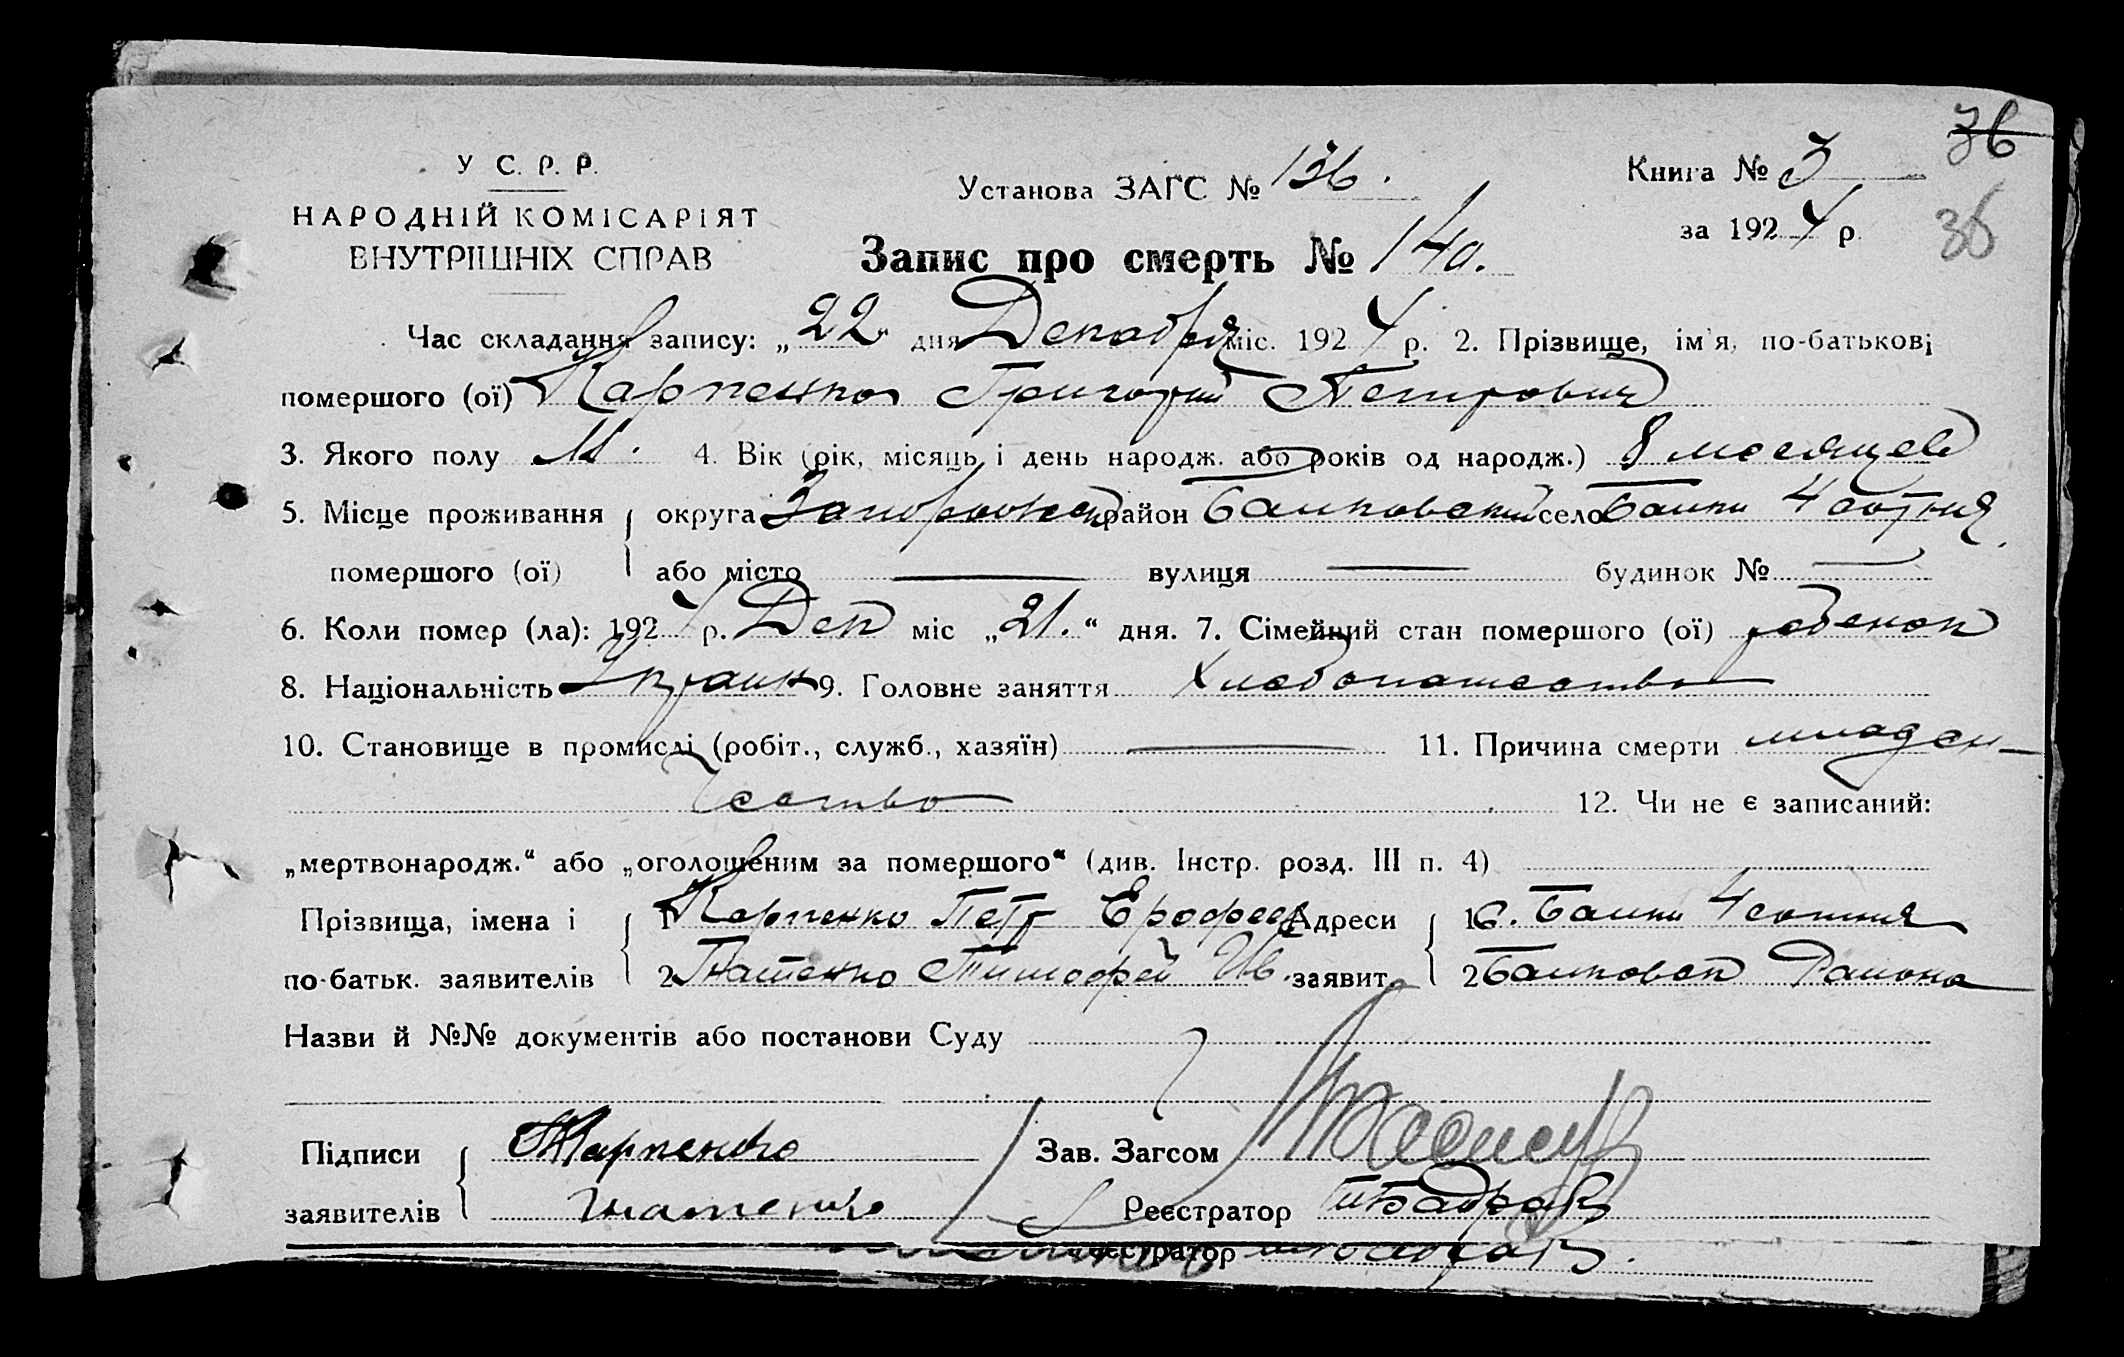 36
У С. Р. Р.
НАРОДНІЙ КОМІСАРІЯТ
ВНУТРІШНІХ СПРАВ
Установа ЗАГС № 136.
Книга № 3
за 1924 р.
36
Запис про смерть № 140.
Час складання запису: „22“ дня Декабря міс. 1924 р. 2. Прізвище, ім'я, по-батькові
помершого (ої) Карпенко Григорий Петрович
3. Якого полу М. 4. Вік (рік, місяць і день народж. або років од народж.) 8 месяцев
5. Місце проживання округа Запорожск район Балковский село Балки 4 сотня
помершого (ої) або місто — вулиця — будинок № —
6. Коли помер (ла): 1924 р. Дек міс „21.“ дня. 7. Сімейний стан помершого (ої) ребенок
8. Національність Украин 9. Головне заняття Хлебопашество
10. Становище в промислі (робіт., служб., хазяїн) — 11. Причина смерти младен-
чество 12. Чи не є записаний:
„мертвонародж.“ або „оголошеним за помершого“ (див. Інстр. розд. III п. 4)
Прізвища, імена і 1 Карпенко Петр Ерофеев Адреси 1 С. Балки 4 сотня
по-батьк. заявителів 2 Гнатенко Тимофей Ив. заявит. 2 Балковск Района
Назви й №№ документів або постанови Суду
Підписи Карпенко Зав. Загсом
заявителів Гнатенко Реєстратор
Реєстратор